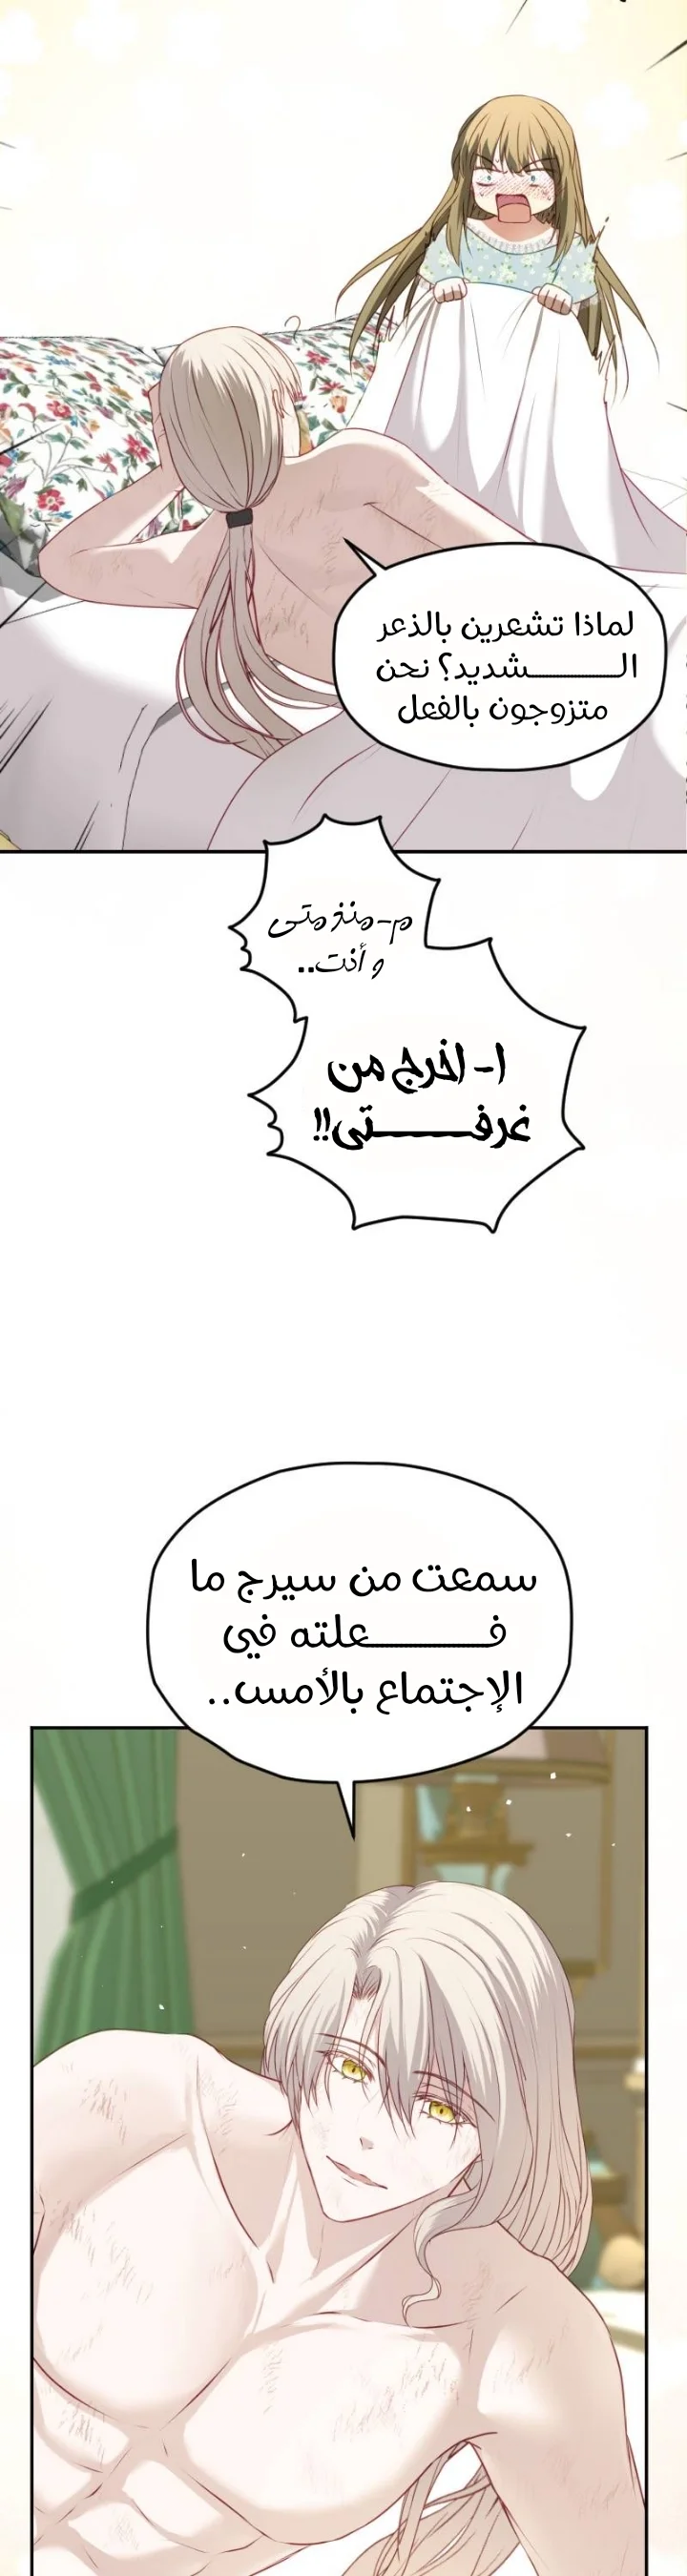 لماذا تشعرين بالذعر
الـــــــــشديد؟ نحن
متزوجون بالفعل
م-منذ متى
و أنت..
ا- اخرج من
غرفـــــــتي!!
سمعت من سيرج ما
فـــــــــعلته في
الإجتماع بالأمس..